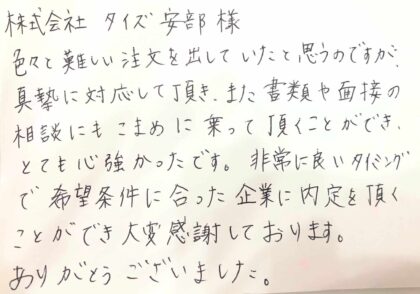 株式会社 タイズ 安部 様
色々と難しい注文を出していたと思うのですが、
真摯に対応して頂き、また書類や面接の
相談にもこまめに乗って頂くことができ、
とても心強かったです。非常に良いタイミング
で希望条件に合った企業に内定を頂く
ことができ大変感謝しております。
ありがとうございました。